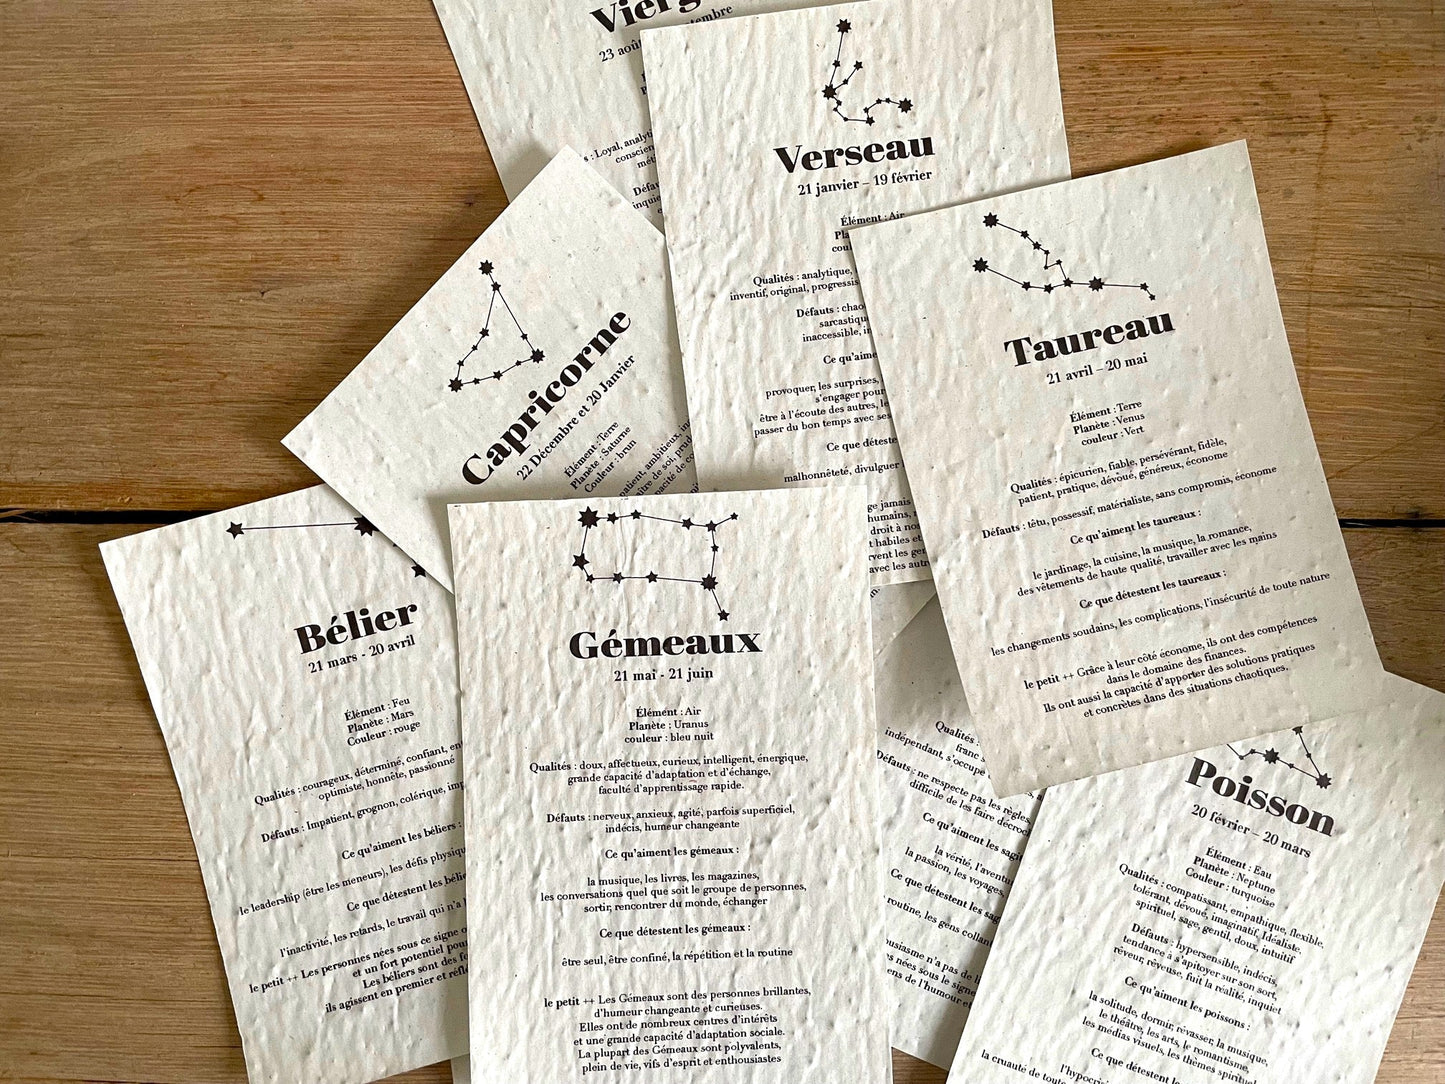 23 août
Loyal,
Verseau
21 janvier – 19 février
Élément : Air
Qualités : analytique,
inventif, original,
Défauts :
inaccessible,
Ce qu'aime
provoquer, les surprises,
s'engager pour
être à l'écoute des autres,
passer du bon temps avec ses
Ce que
malhonnêteté, divulguer
Taureau
21 avril – 20 mai
Élément : Terre
Planète : Venus
couleur : Vert
Qualités : épicurien, fiable, persévérant, fidèle,
patient, pratique, dévoué, généreux, économe
Défauts : têtu, possessif, matérialiste, sans compromis, économe
Ce qu'aiment les taureaux :
le jardinage, la cuisine, la musique, la romance,
des vêtements de haute qualité, travailler avec les mains
Ce que détestent les taureaux :
les changements soudains, les complications, l'insécurité de toute nature
le petit ++ Grâce à leur côté économe, ils ont des compétences
dans le domaine des finances.
Ils ont aussi la capacité d'apporter des solutions pratiques
et concrètes dans des situations chaotiques.
Capricorne
22 Décembre et 20 Janvier
Élément : Terre
Planète : Saturne
Couleur : brun
ambitieux,
Bélier
21 mars - 20 avril
Élément : Feu
Planète : Mars
Couleur : rouge
Qualités : courageux, déterminé, confiant,
optimiste, honnête, passionné
Défauts : Impatient, grognon, colérique,
Ce qu'aiment les béliers :
le leadership (être les meneurs), les défis
Ce que détestent les
l'inactivité, les retards, le travail qui n'a
le petit ++ Les personnes nées sous ce signe
et un fort potentiel pour
Les béliers sont des
ils agissent en premier et
Gémeaux
21 mai - 21 juin
Élément : Air
Planète : Uranus
couleur : bleu nuit
Qualités : doux, affectueux, curieux, intelligent, énergique,
grande capacité d'adaptation et d'échange,
faculté d'apprentissage rapide.
Défauts : nerveux, anxieux, agité, parfois superficiel,
indécis, humeur changeante
Ce qu'aiment les gémeaux :
la musique, les livres, les magazines,
les conversations quel que soit le groupe de personnes,
sortir, rencontrer du monde, échanger
Ce que détestent les gémeaux :
être seul, être confiné, la répétition et la routine
le petit ++ Les Gémeaux sont des personnes brillantes,
d'humeur changeante et curieuses.
Elles ont de nombreux centres d'intérêts
et une grande capacité d'adaptation sociale.
La plupart des Gémeaux sont polyvalents,
plein de vie, vifs d'esprit et enthousiastes
Qualités :
franc
indépendant, s'occupe
Défauts : ne respecte pas les règles,
difficile de les faire
Ce qu'aiment les
la vérité,
la passion, les voyages,
Ce que détestent les
routine, les gens
n'a pas de
nées sous le signe
de l'humour et
Poisson
20 février – 20 mars
Élément : Eau
Planète : Neptune
Couleur : turquoise
Qualités : compatissant, empathique, flexible,
tolérant, dévoué, imaginatif, Idéaliste,
spirituel, sage, gentil, doux, intuitif
Défauts : hypersensible, indécis,
tendance à s'apitoyer sur son sort,
rêveur, rêveuse, fuit la réalité, inquiet
Ce qu'aiment les poissons :
la solitude, dormir, rêvasser, la musique,
le théâtre, les arts, le romantisme,
les médias visuels, les thèmes
Ce que détestent
la cruauté de